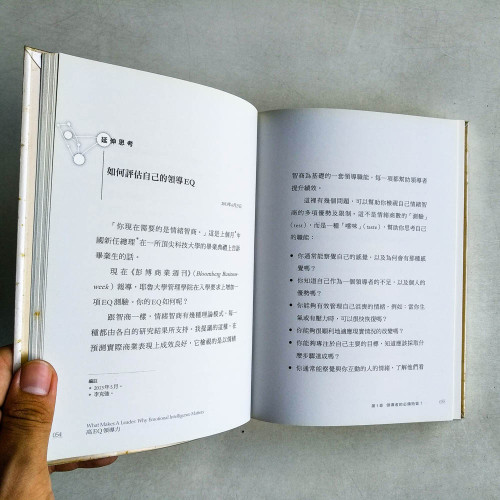 延伸思考
如何評估自己的領導EQ
「你現在需要的是情緒智商。」這是上個月*中
國新任總理*在一所頂尖科技大學的畢業典禮上告訴
畢業生的話。
現在《彭博商業週刊》(Bloomberg Business
week)報導,耶魯大學管理學院在入學要求上增加一
項EQ測驗。你的EQ如何呢?
跟智商一樣,情緒智商有幾種理論模式,每一
種都由各自的研究結果所支持。我提議的這種,在
預測實際商業表現上成效良好,它檢視的是以情緒
編註
• 2013年5月。
• 李克強。
054
What Makes A Leader: Why Emotional Intelligence Matters
高EQ領導力
智商為基礎的一套領導職能,每一項都幫助領導者
提升績效。
這裡有幾個問題,可以幫助你檢視自己情緒智
商的多項優勢及限制。這不是情緒商數的「測驗」
(test),而是一種「嚐味」(taste),幫助你思考自己
的職能:
• 你通常能察覺自己的感覺,以及為何會有那種感
覺嗎?
• 你知道自己作為一個領導者的不足,以及個人的
優勢嗎?
• 你能夠有效管理自己沮喪的情緒,例如:當你生
氣或有壓力時,可以很快恢復嗎?
• 你能夠很順利地適應現實情況的改變嗎?
• 你能夠專注於自己主要的目標,知道應該採取什
麼步驟達成嗎?
• 你通常能察覺與你互動的人的情緒,了解他們看